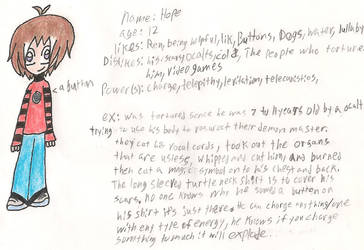 Name: Hope
age: 12
likes: Ren, being helpful, lik, Buttons, Dogs, water, lullaby
Dislikes: his scars, ocults, cold, The people who torture
him, video games
Power(s): charge, telepithy, levitation, telecanistics,
a button
ex: was tortured since he was 7 to 11 years old by a ocult
trying to use his body to resurract their demon master.
they cut his vocal cords, took out the organs
that are usless, whipped and cut him, and burned
then cut a magic symbol onto his chest and back.
The long sleeved turtle neck shirt is to cover his
scars, no one knows why he sowed a button on
his shirt it's just there. He can charge anything/one
with any type of energy, he knows if you charge
something to much it will explode...